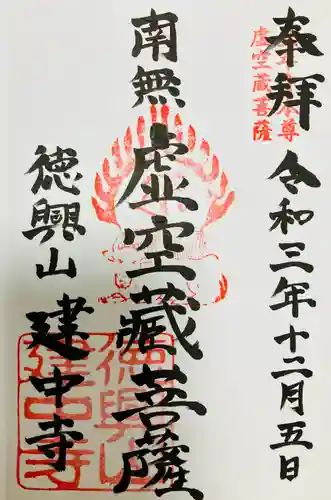 奉拝
令和三年十二月五日
虚空蔵菩薩
南無
虚空蔵菩薩
徳興山
建中寺
徳興山
建中寺